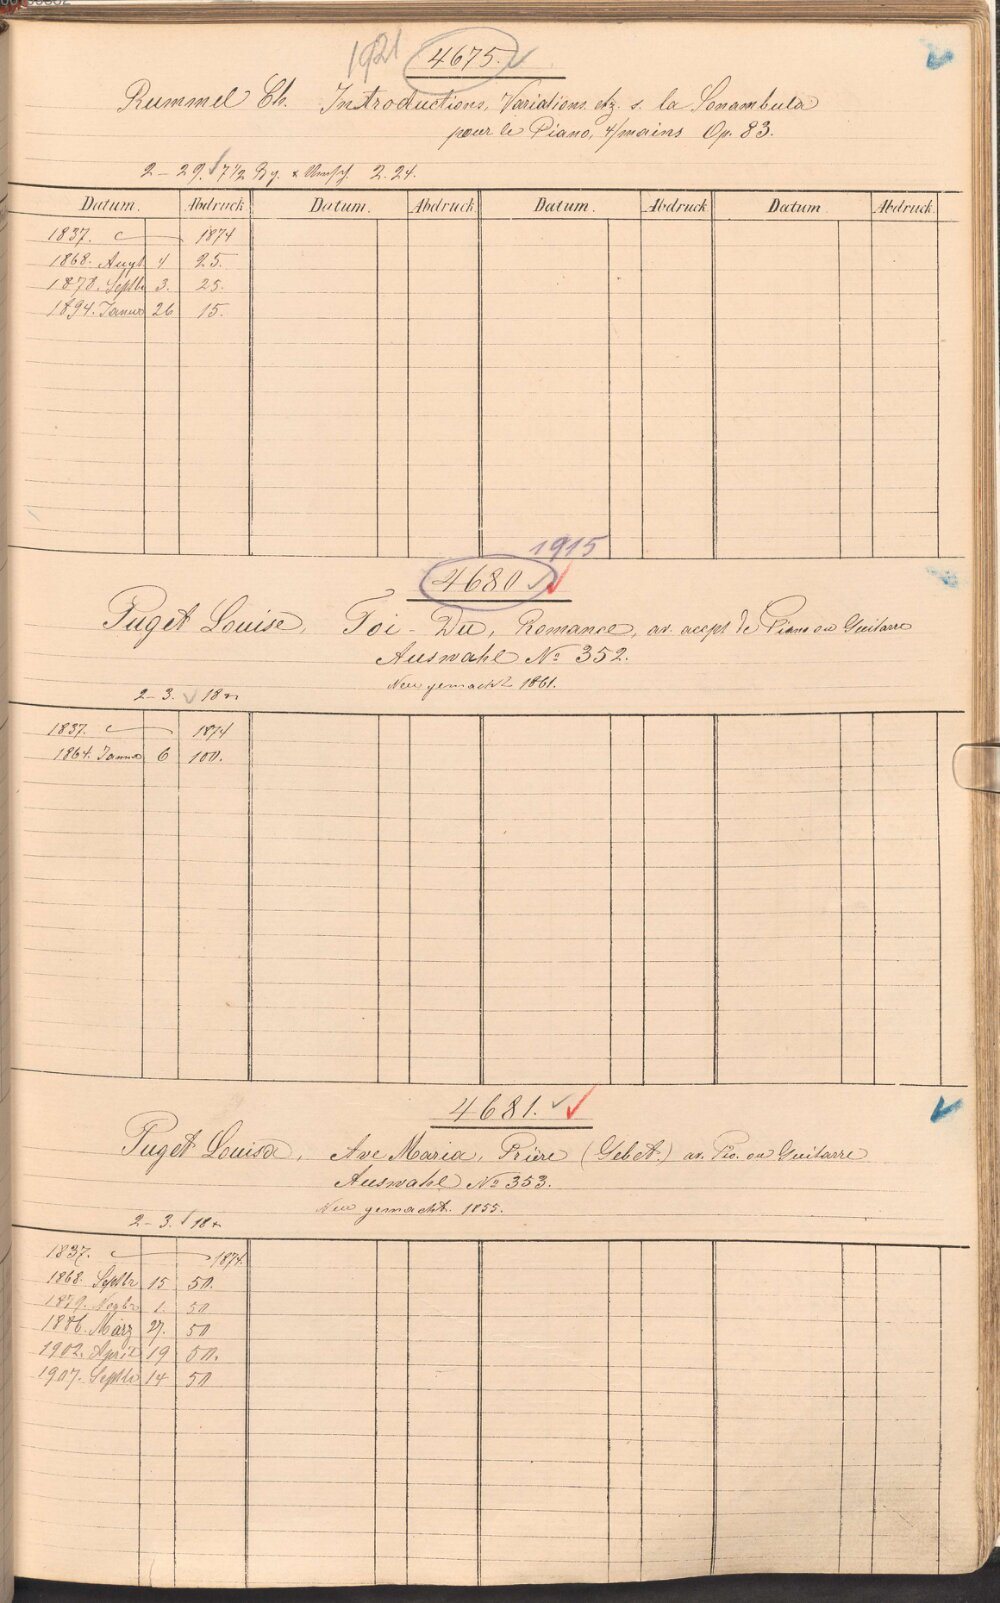 1921 4675.
Rummel Ch. Introductions, Variations etz. s. la Sonambula
pour le Piano, 4/mains Op. 83.
2-29. 7 1/2 Bg. 2.24.
Datum. Abdruck Datum. Abdruck Datum. Abdruck Datum Abdruck
1837. 1874
1868. Augt. 4 25.
1878. Septbr 3. 25.
1894. Januar 26 15.
1915
4680
Puget Louise, Toi-Du, Romance, av. accpt de Piano ou Guitarre
Auswahl No 352.
Neu gemacht 1861.
2-3. 18
1837. 1874
1864. Januar 6 100.
4681.
Puget Louise, Ave Maria, Prière (Gebet.) av. Po. ou Guitarre
Auswahl No 353.
Neu gemacht. 1855.
2-3. 18
1837. 1874.
1868. Septbr 15 50.
1879. Novbr 1. 50
1886. März 27. 50
1902. April 19 50.
1907. Septbr 14 50